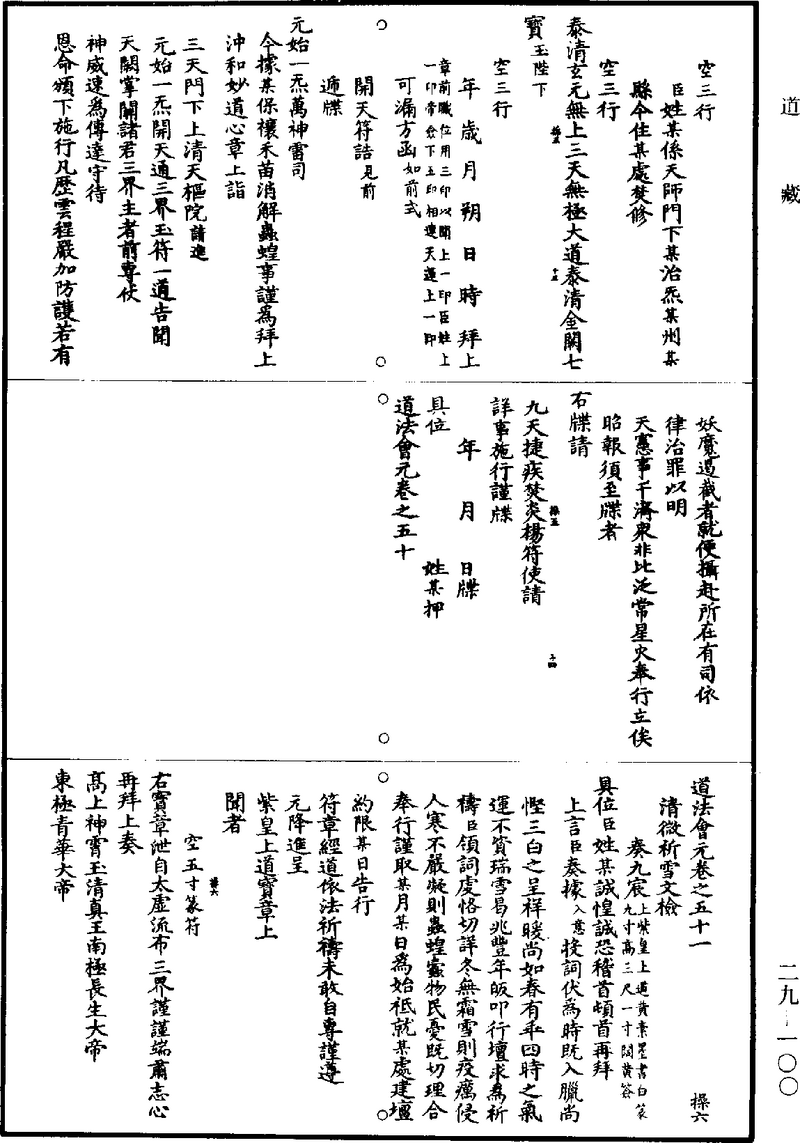 道藏
空三行
臣姓某係天師門下某治炁某州某
縣今住某處焚修
空三行
泰清玄元無上三天無極大道泰清金闕七
寶玉陛下
空三行
年歲月朔日時拜上
章前職位用三印以聞上一印臣姓上
一印常僉下五印相連天運上一印
可漏方函如前式
開天符誥見前
遞牒
元始一炁萬神雷司
今據某保禳禾苗消解蟲蝗事謹為拜上
沖和妙道心章上詣
三天門下上清天樞院請進
元始一炁開天通三界玉符一道告聞
天闕掌開諸君三界主者前專伏
神威速為傳達守待
恩命頒下施行凡歷雲程嚴加防護若有
妖魔遏截者就便攝赴所在有司依
律治罪以明
天憲事干濟衆非比泛常星火奉行立俟
昭報須至牒者
右牒請
九天捷疾焚炎楊符使請
詳事施行謹牒
年月日牒
具位姓某押
道法會元卷之五十
道法會元卷之五十一 操六
清微祈雪文檢
奏九宸上紫皇上道黃素墨書白篆
九寸高三尺一寸闊黃簽
具位臣姓某誠惶誠恐稽首頓首再拜
上言臣奏據入意投詞伏為時既入臘尚
慳三白之呈祥暖尚如春有乖四時之氣
運不賫瑞雪曷兆豐年皈叩行壇求為祈
禱臣領詞虔恪切詳冬無霜雪則疫癘侵
人寒不嚴凝則蟲蝗蠹物民憂既切理合
奉行謹取某月某日為始祗就某處建壇
約限某日告行
符章經道依法祈禱未敢自專謹遵
元降進呈
紫皇上道寶章上
聞者
空五寸篆符
右寶章泄自太虛流布三界謹謹端肅志心
再拜上奏
高上神霄玉清真王南極長生大帝
東極青華大帝
二九-一〇〇